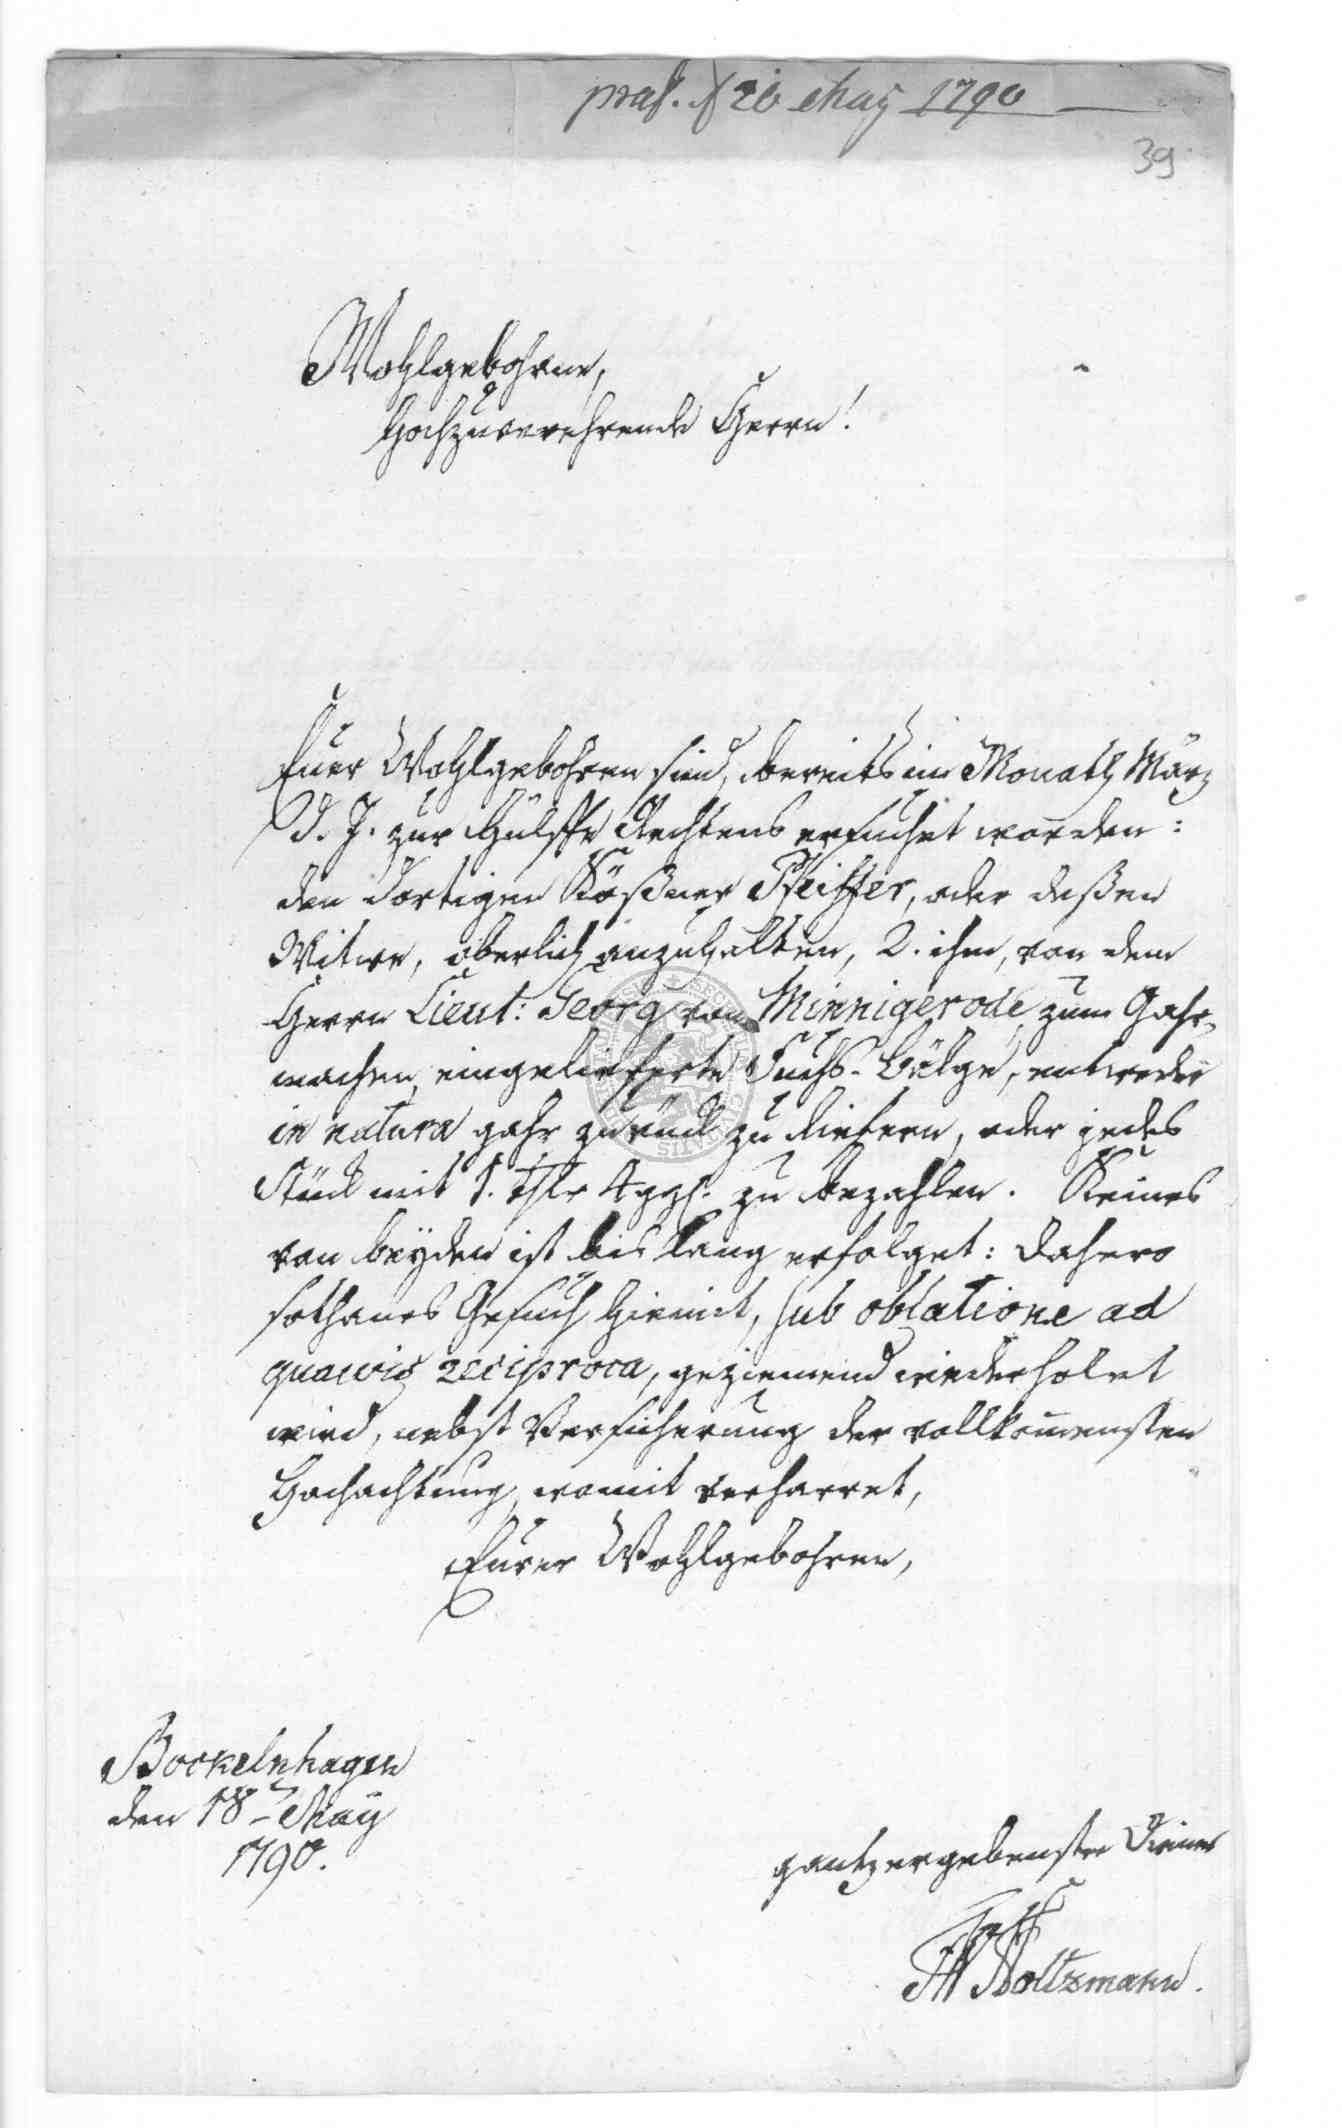 præs. d 26 May 1790
39
Wohlgebohrne,
Hochzuverehrende Herrn!
Euer Wohlgebohren sind, bereits im Monath März
d. J. zur Hülffe Rechtens ersuchet worden:
den dortigen Pfeiffer, oder deßen
Witwe, oberlich anzuhalten, 2. ihm, von dem
Herrn Lieut: Georg von Minnigerode, zum Gahr-
machen, eingelieferte Fuchs-Bälge, entweder
in natura gahr zurück zu liefern, oder jedes
Stück mit 1. Thlr 4 ggl. zu bezahlen. Keines
von beyden ist bis lang erfolget: dahero
sothanes Gesuch hiemit, sub oblatione ad
quaevis reciproca, geziemend wiederholet
wird, nebst Versicherung der vollkom̄ensten
Hochachtung, womit verharret,
Eurer Wohlgebohren,
Bockelnhagen
den 18 May
1790.
gantz ergebenster Diener
Holtzmann.